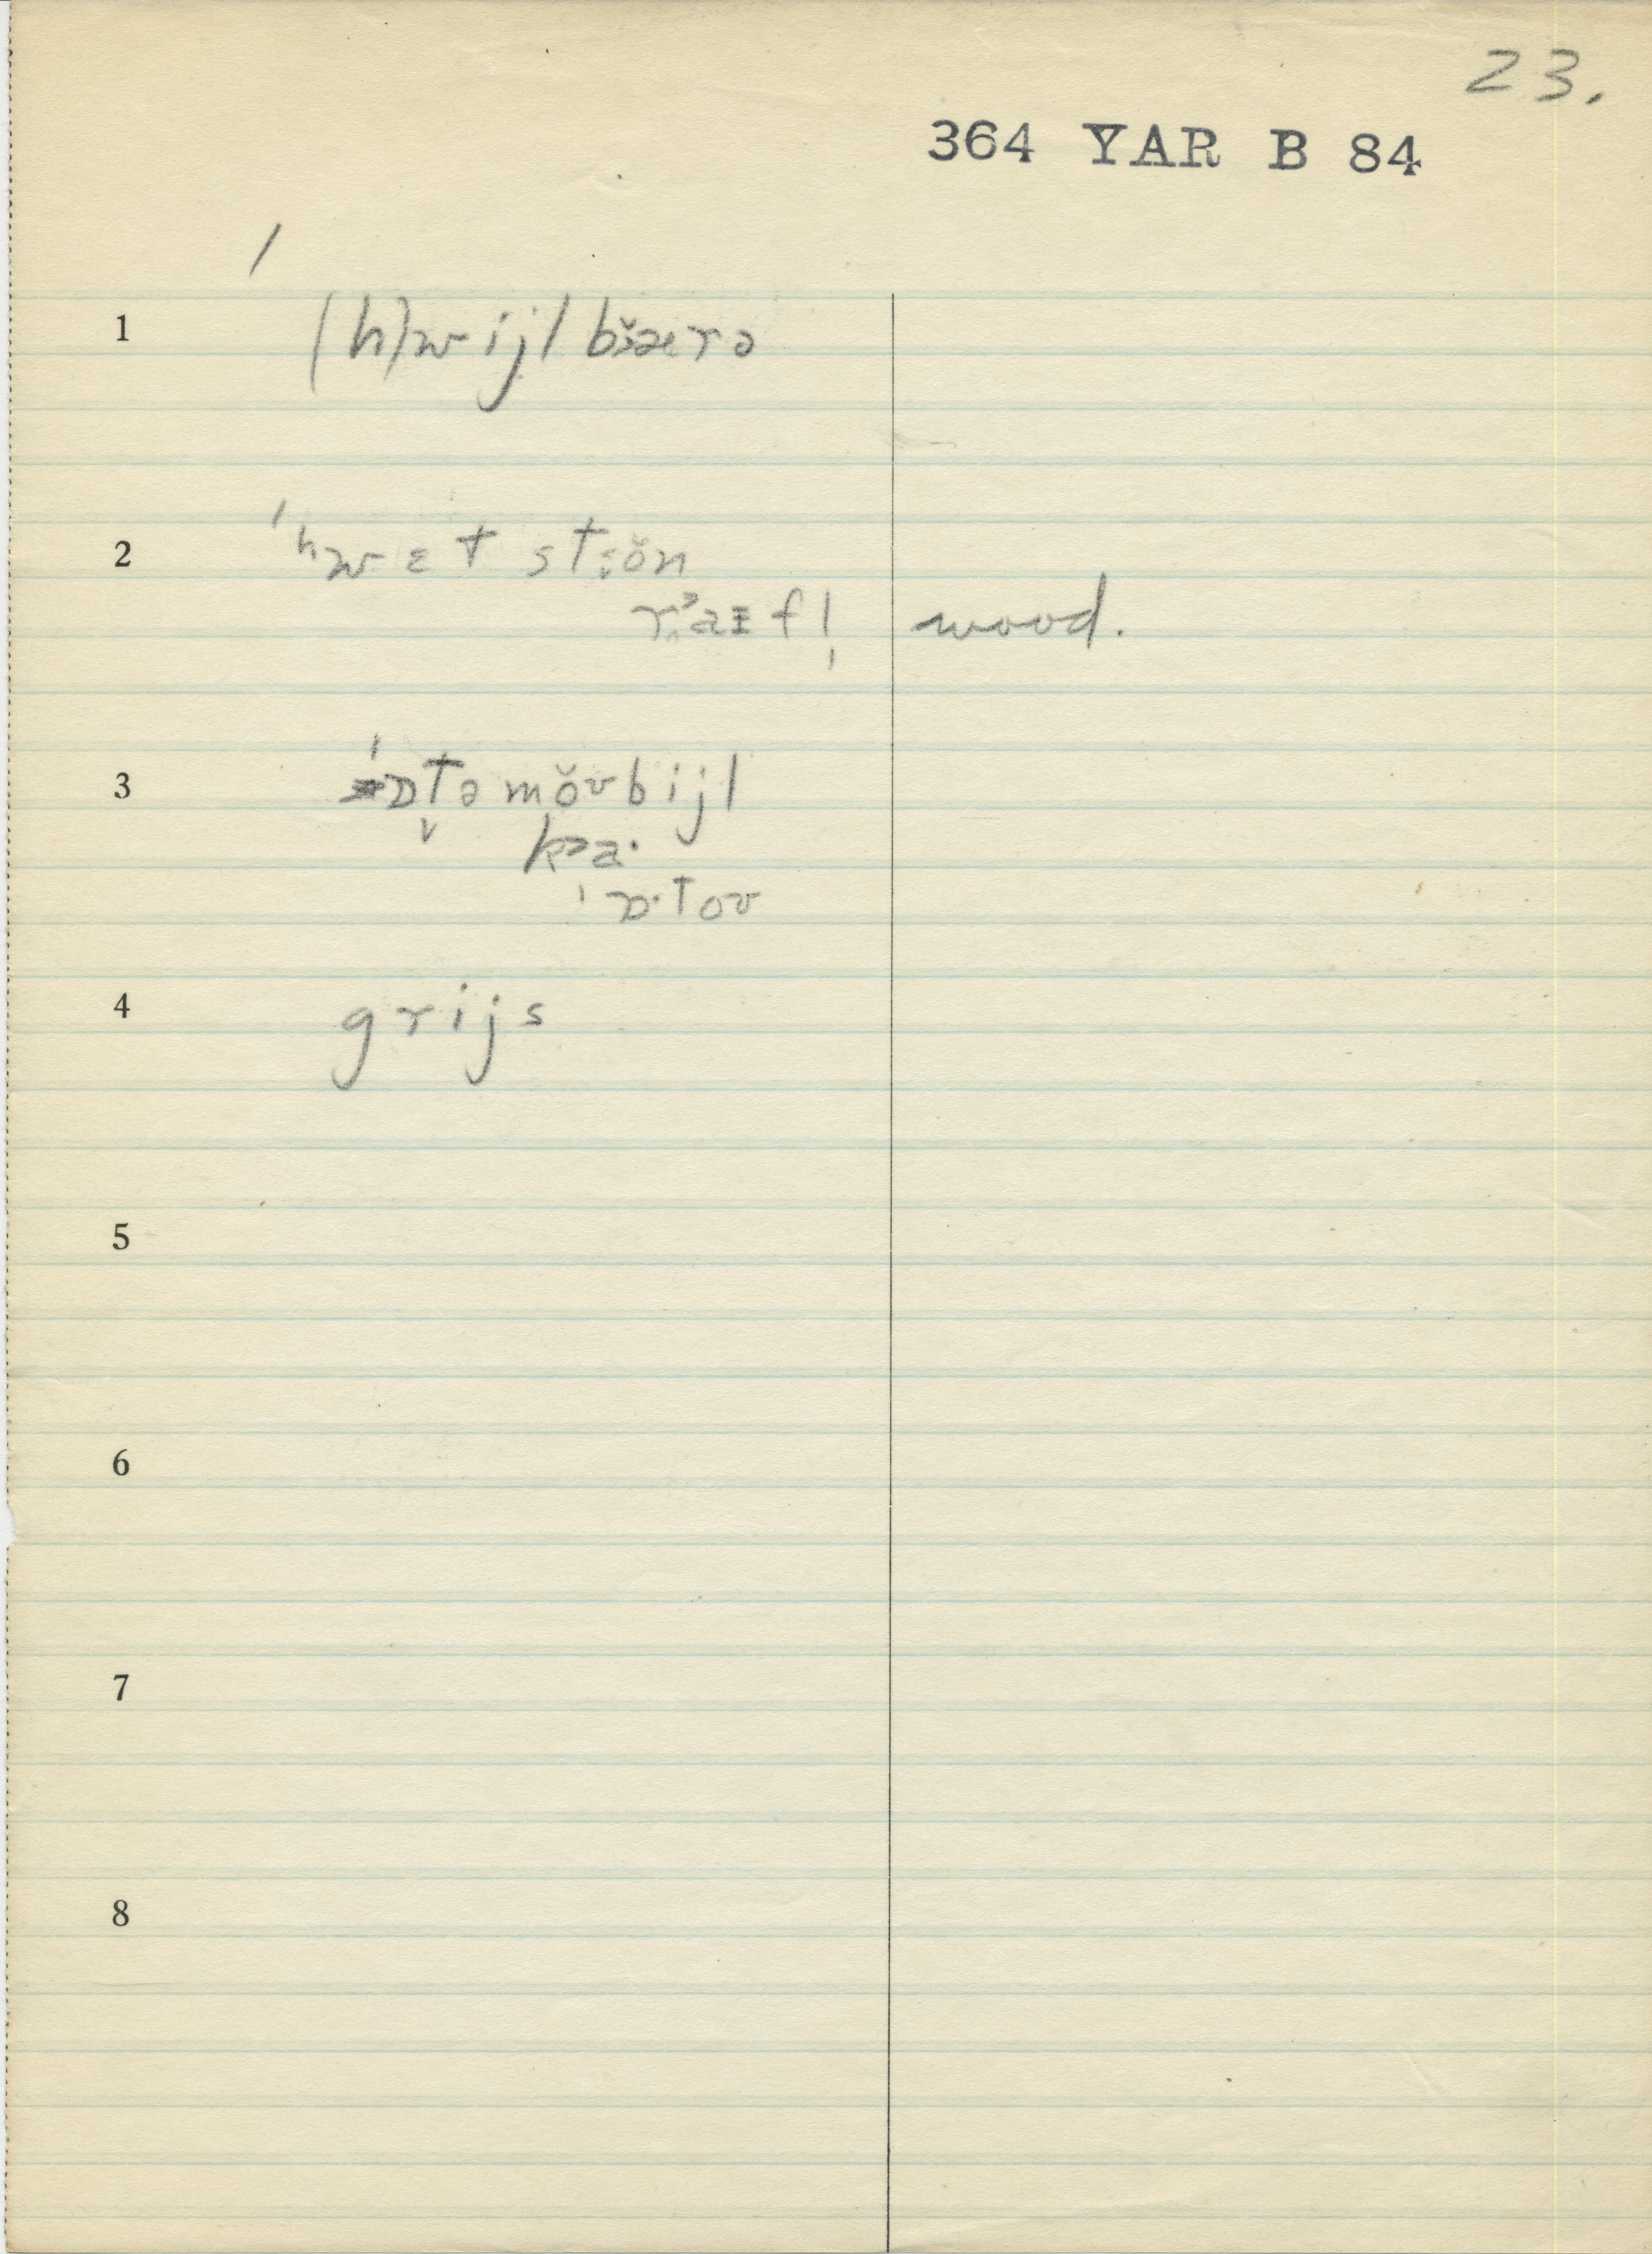 23.
364 YAR B 84
1 ˈ(h)wijlbɜ̆ærə
2 ˈʰwɛt stɵ̆n
rᵓaɪfl̩ wood.
3 ˈɒt̬əmŏʊbijl
k˃a·
ˈɒ·toʊ
4 grijs
5
6
7
8